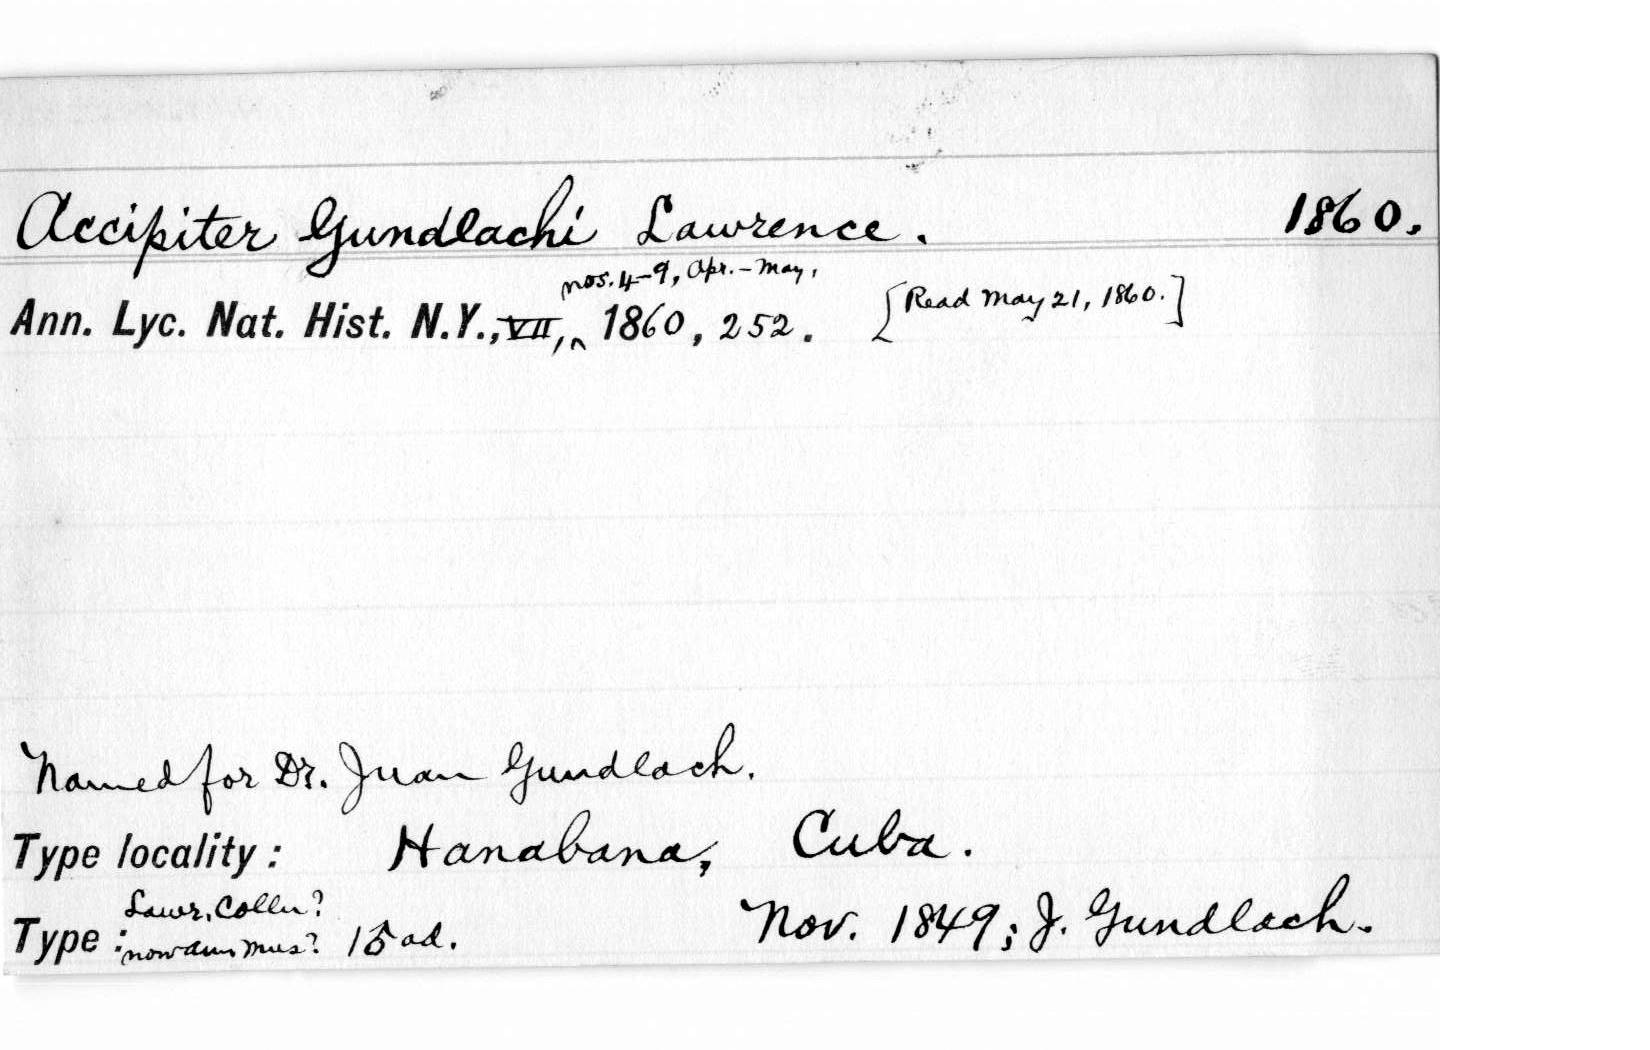 Accipiter Gundlachi Lawrence. 1860.
nos. 4-9, Apr.-May,
Ann. Lyc. Nat. Hist. N.Y., VII, ^ 1860, 252. [Read May 21, 1860.]
Named for Dr. Juan Gundlach.
Type locality: Hanabana, Cuba.
Lawr. Colln?
Type: now Am Mus? ad. Nov. 1849; J. Gundlach.